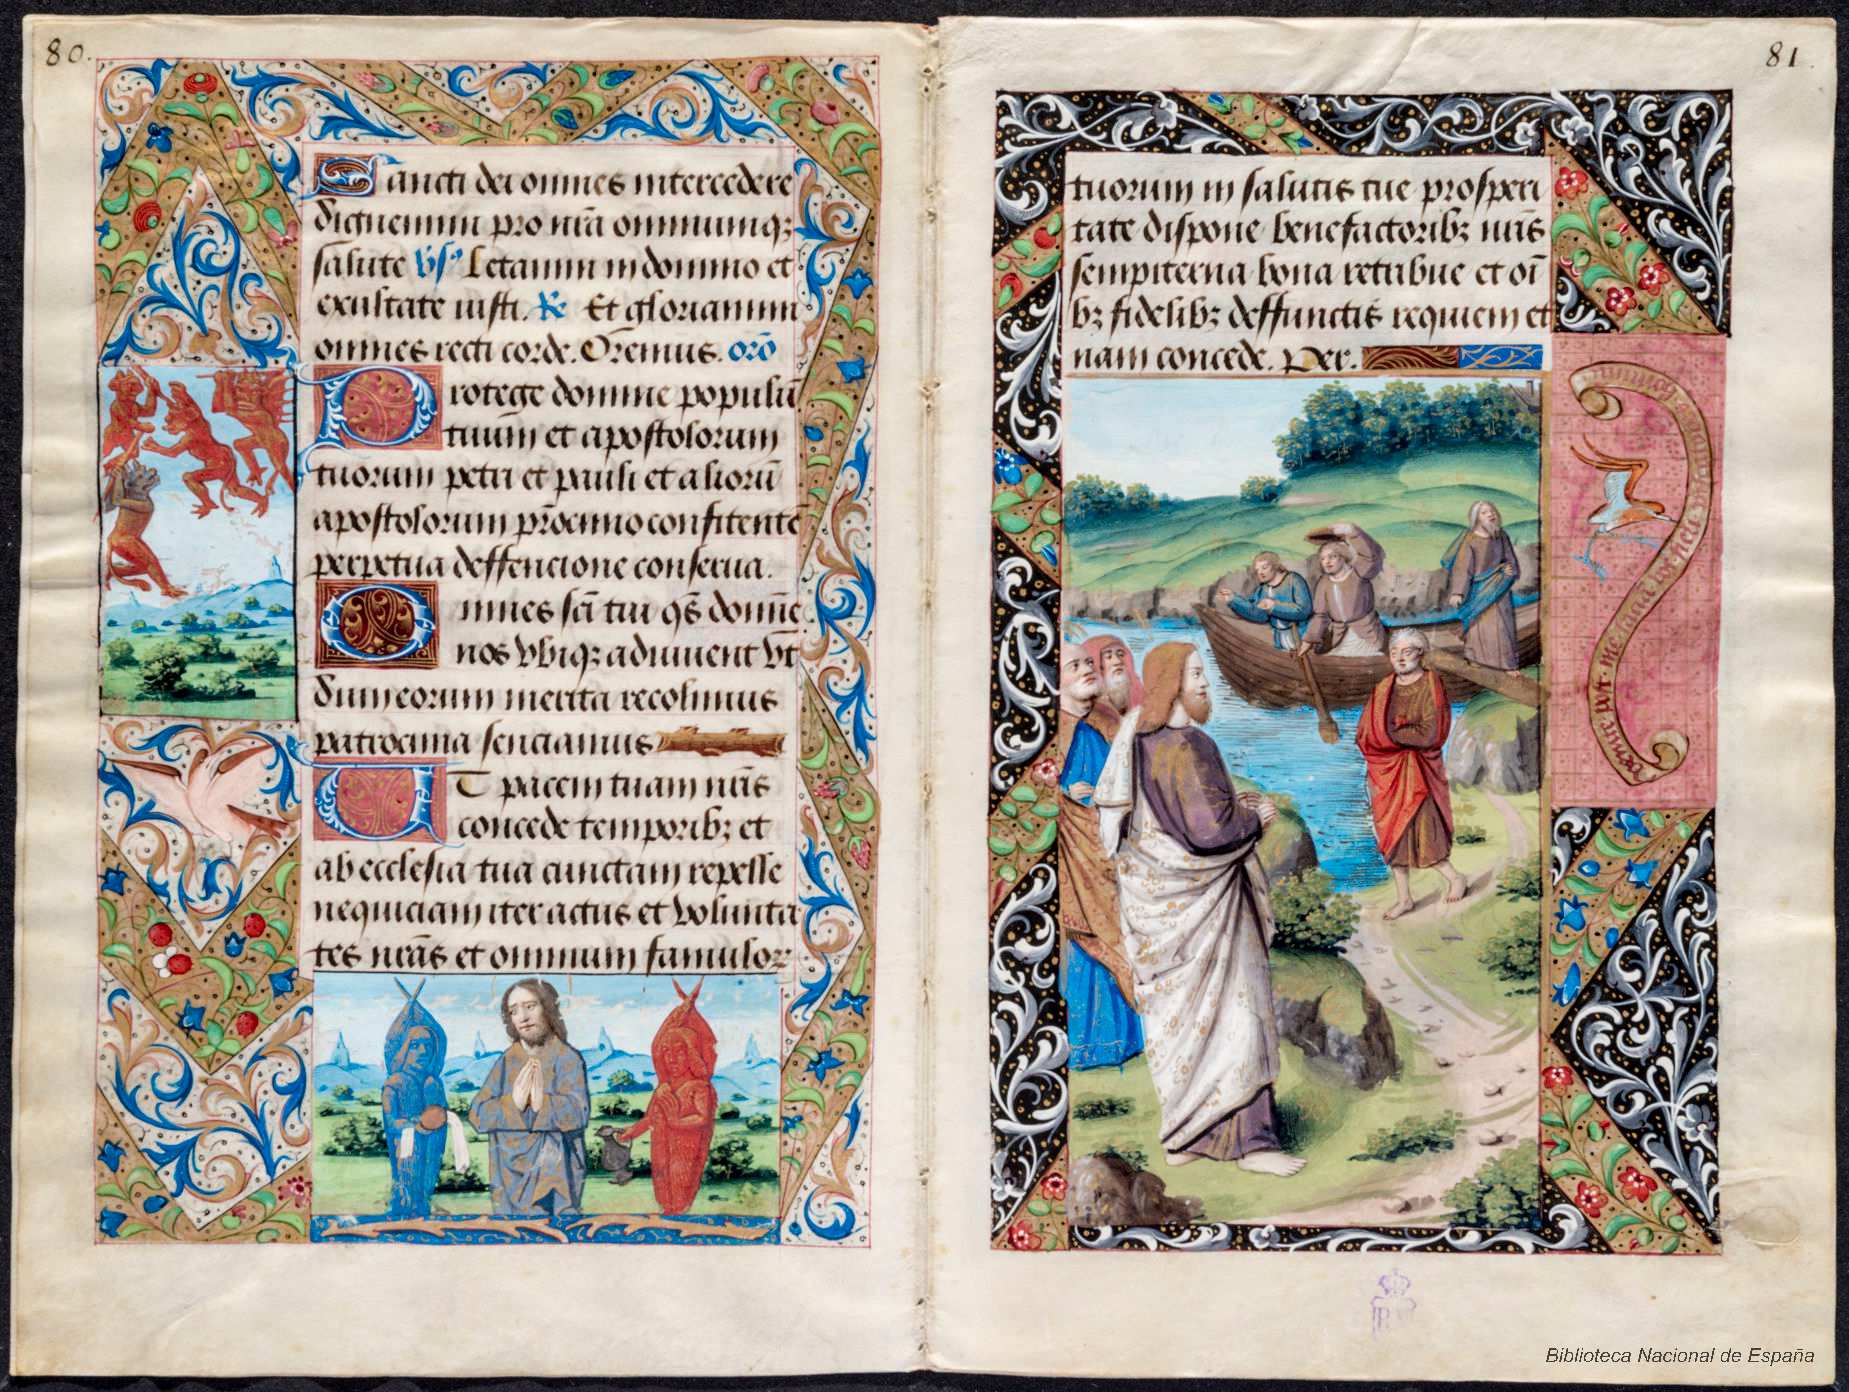 80.
Sancti dei omnes intercedere
dignemini pro nr̄a omniumqꝫ
salute vs̄ Letamini in domino et
exultate iusti. R̄e Et gloriamini
omnes recti corde. Ōremus. orō
Protege domine populū
tuum et apostolorum
tuorum petri et pauli et aliorū
apostolorum pr̄ocinio confitentē
perpetua deffencione conserua.
Omnes sc̄i tui qs̄ domīe
nos vbiqꝫ adiuuent vt
dum eorum merita recolimus
patrocinia senciamus
Et pacem tuam nr̄is
concede temporibꝫ et
ab ecclesia tua cunctam repelle
nequiciam iter actus et volunta
tes nr̄as et omnium famulorꝝ
81.
tuorum in salutis tue prosperi
tate dispone benefactoribꝫ nr̄is
sempiterna bona retribue et oī
bꝫ fidelibꝫ deffunctis requiem et
nam concede. Per.
Biblioteca Nacional de España